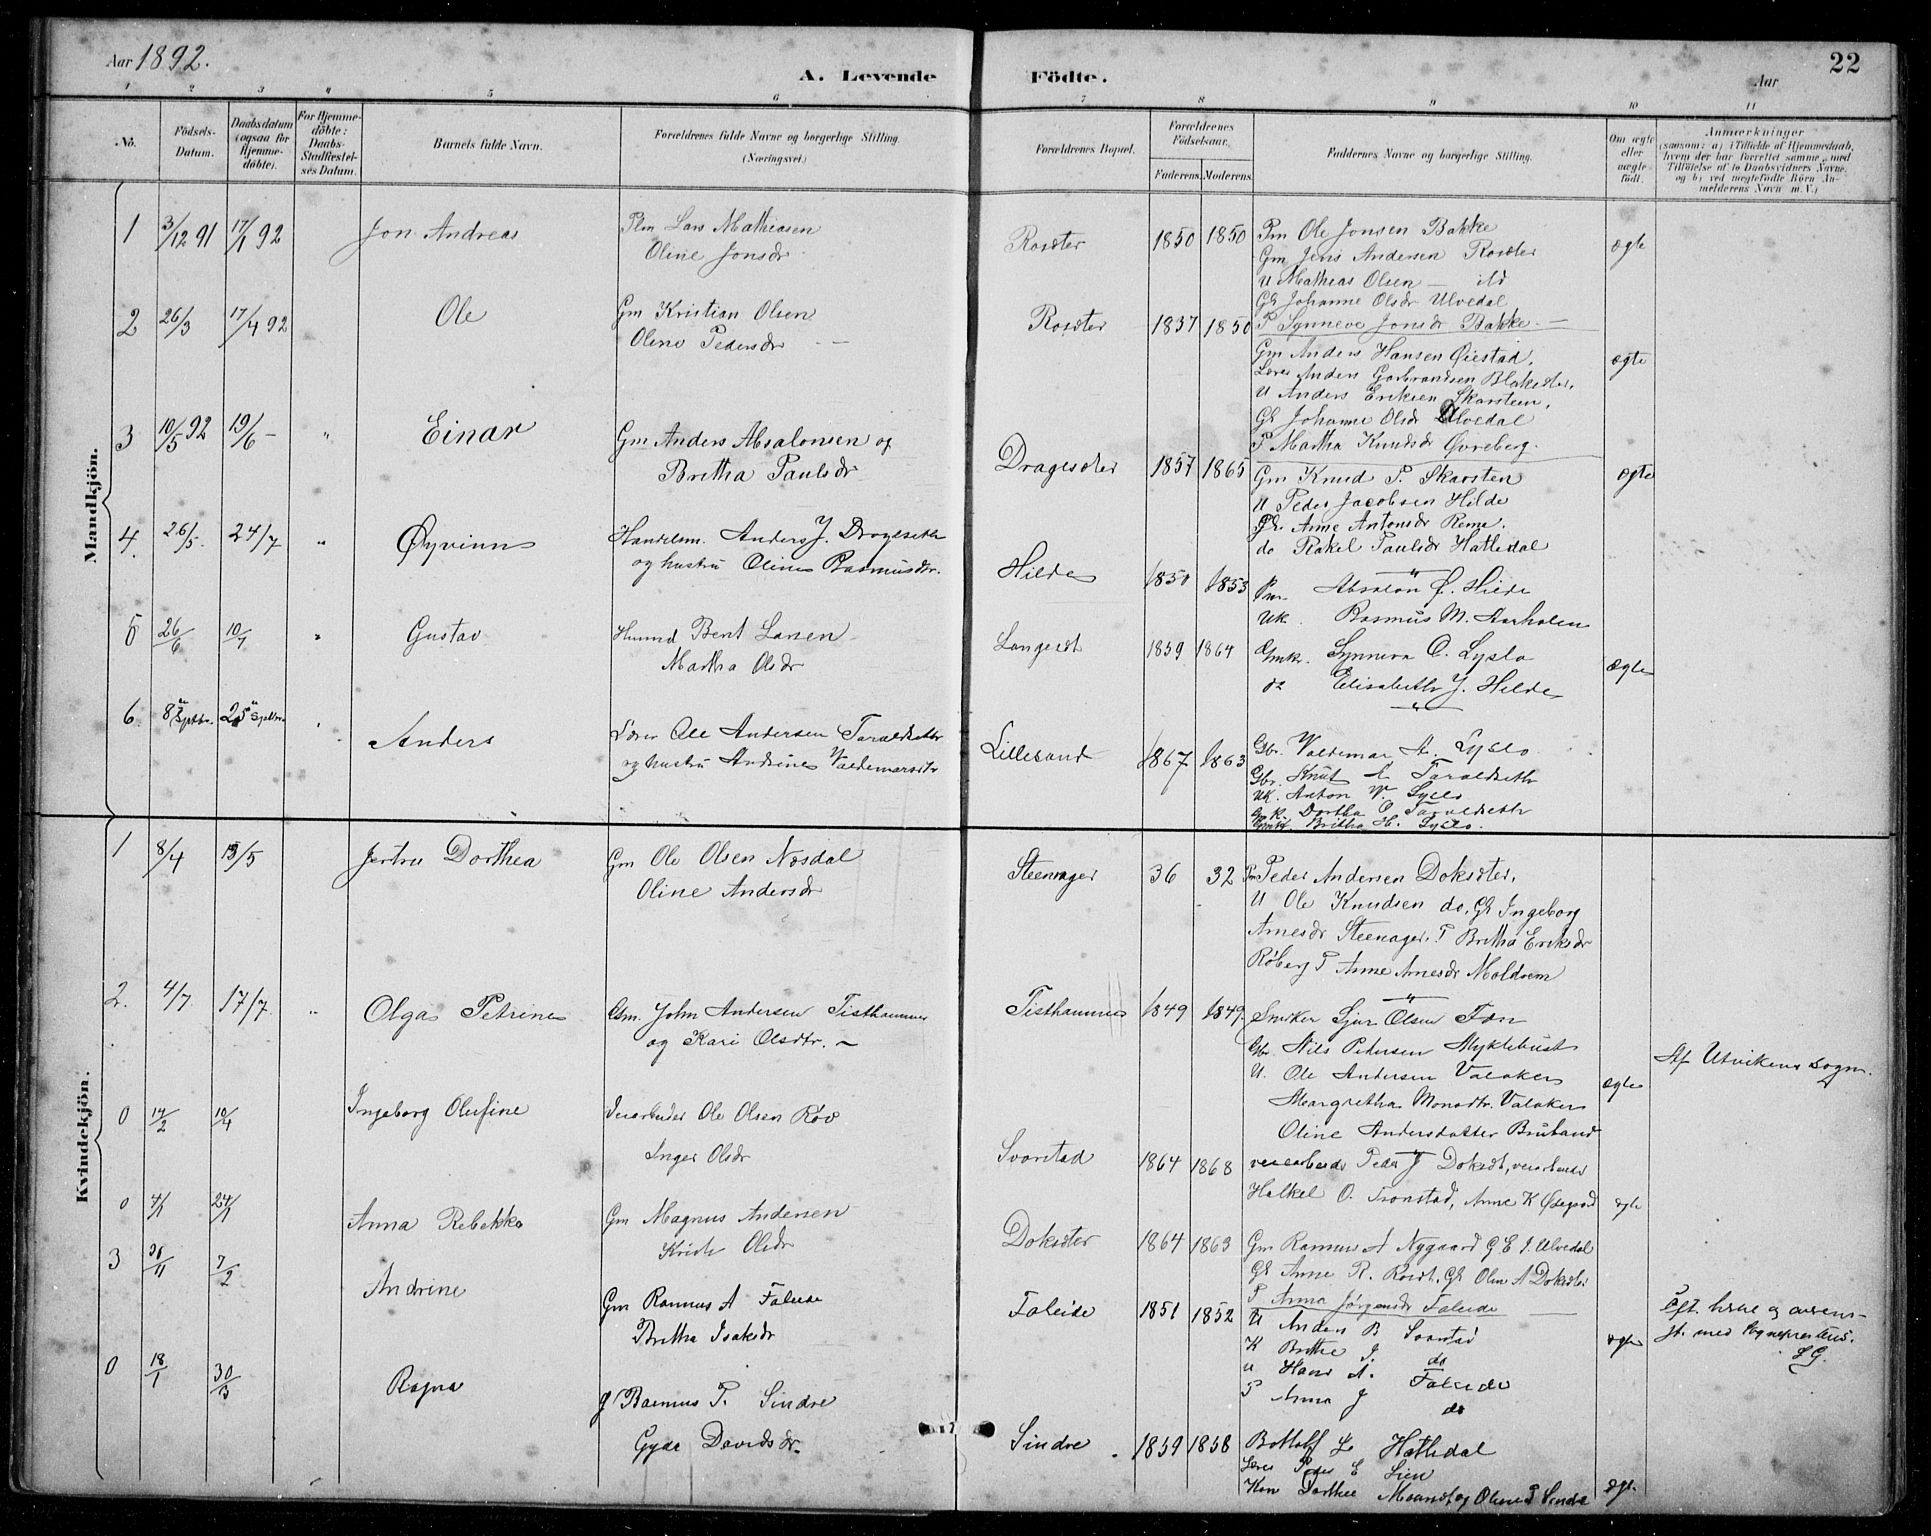 Aar 1892.
A. Levende Födte.
Aar
22
1 2 3 4 5 6 7 8 9 10 11
No.
Födsels-Datum.
Daabsdatum (ogsaa for Hjemme-döbte).
For Hjemme-döbte: Daabs-Stadfæstel-ses Datum.
Barnets fulde Navn.
Forældrenes fulde Navne og borgerlige Stilling.
(Næringsvei.)
Forældrenes Bopæl.
Forældrenes Födselsaar.
Faderens. Moderens.
Faddernes Navne og borgerlige Stilling.
Om ægte eller uægte födt.
Anmærkninger
(saasom: a) i Tilfælde af Hjemmedaab, hvem der har forrettet samme, med Tilföielse af to Daabsvidners Navne. og b) ved uægtefödte Börn Anmelderens Navn m. V.)
Mandkjön.
1 3/12 91 17/1 92 Jon Andreas
Plm Lars Mathiasen
Oline Jonsdr
Rosæter 1850 1850
Pm Ole Jonsen Bakke
Gm Jens Andersen Rosæter
U Mathias Olsen — ild
Gk Johanne Olsdr Ulvedal
P Synneve Jonsdr Bakke
ægte
2 26/3 17/4 92 Ole
Gm Kristian Olsen
Oline Pedersdr
Rosæter 1837 1850
Gm Anders Hansen Øiestad,
Lærer Anders Gerbrandsen Blakseter,
U Anders Eriksen Skarstein,
Gk Johanne Olsdr Ulvedal
P Martha Knudsdr Øvreberg
ægte
3 10/5 92 19/6 – " Einar
Gm Anders Absalonsen og
Britha Paulsdr
Drageseter 1857 1865
Gm Knud P. Skarsten
U Peder Jacobsen Hilde
Gk Anne Antonsdr Reme.
do Rakel Paulsdr Hatledal
ægte
4. 26/5. 24/7 " Øyvinn
Handelsm. Anders J. Drageseth
og hustru Oline Rasmusdtr.
Hilde 1850 1853
Pm. Absalon Ø. Hilde
Uk. Rasmus M. Aarholen
Gmk. Synneva O. Lyslo
do Elisabeth J. Hilde
5 26/6 10/7 " Gustav
Husmd Bent Larsen
Martha Olsdr
Langesæt 1859 1864
ægte
6. 8 Septbr. 25 Septbr. Anders
Lærer Ole Andersen Taraldseth
og hustru Andrine Valdemarsdtr
Lillesand 1867 1863
Gbr. Valdemar A. Lyslo
Gbr. Knut Taraldseth
Uk. Anton V. Lyslo
Gmk. Dorthea O Taraldseth
Gmk Britha H. Lyslo.
Kvindekjön.
1 8/4 15/5 Jertru Dorthea
Gm Ole Olsen Nosdal
Oline Andersdr
Steenager 36 32
Pm Peder Andersen Doksæter,
U Ole Knudsen do, Gk Ingeborg
Arnesdr Steenager, P Britha Eriksdr
Røberg P Anne Arnesdr Moldrem
2. 4/7. 17/7 " Olga Petrine
Gm. John Andersen Tisthammer
og Kari Olsdtr. ~
Tisthammer 1849 1849
Snekker Sjur Olsen Fon
Gbr. Nils Pedersen Myklebust
U. Ole Andersen Valaker
Margretha Monsdtr. Valaker
Oline Andersdatter Bruland
ægte
Af Utvikens sogn.
0 14/2 10/4 Ingeborg Olufine
Veiarbeider Ole Olsen Røv
Inger Olsdr
Svorstad 1864 1868
veiearbeide Peder J Doksæt, veiarbeide
Halkel O. Tronstad, Anne K
ægte
0 4/1 24/1 Anna Rebekka
Gm Magnus Andersen
Olsdr
Doksæter 1864 1863
Gm Rasmus A Nygaard G E J. Ulvedal
Gk Anne R. Rosæt, Gk Oline A Doksæter
P Anna Jørgensdr Faleide
3 30/11 7/2 Andrine
Gm Rasmus A Faleide
Britha Isaksdr
Faleide 1851 1852
U Anders B Svorstad
K Brithe J. do
U Hans A. Faleide
P Anna J do
ægte
med Sognepresten.
0 18/1 30/3 Ragna
Rasmus P. Sindre
Gyda Davidsdr.
Sindre 1859 1858
Bottolf L Hatledal
Lærer Peder E Lien
Kon Dorthea og Oline P Sindre
ægte